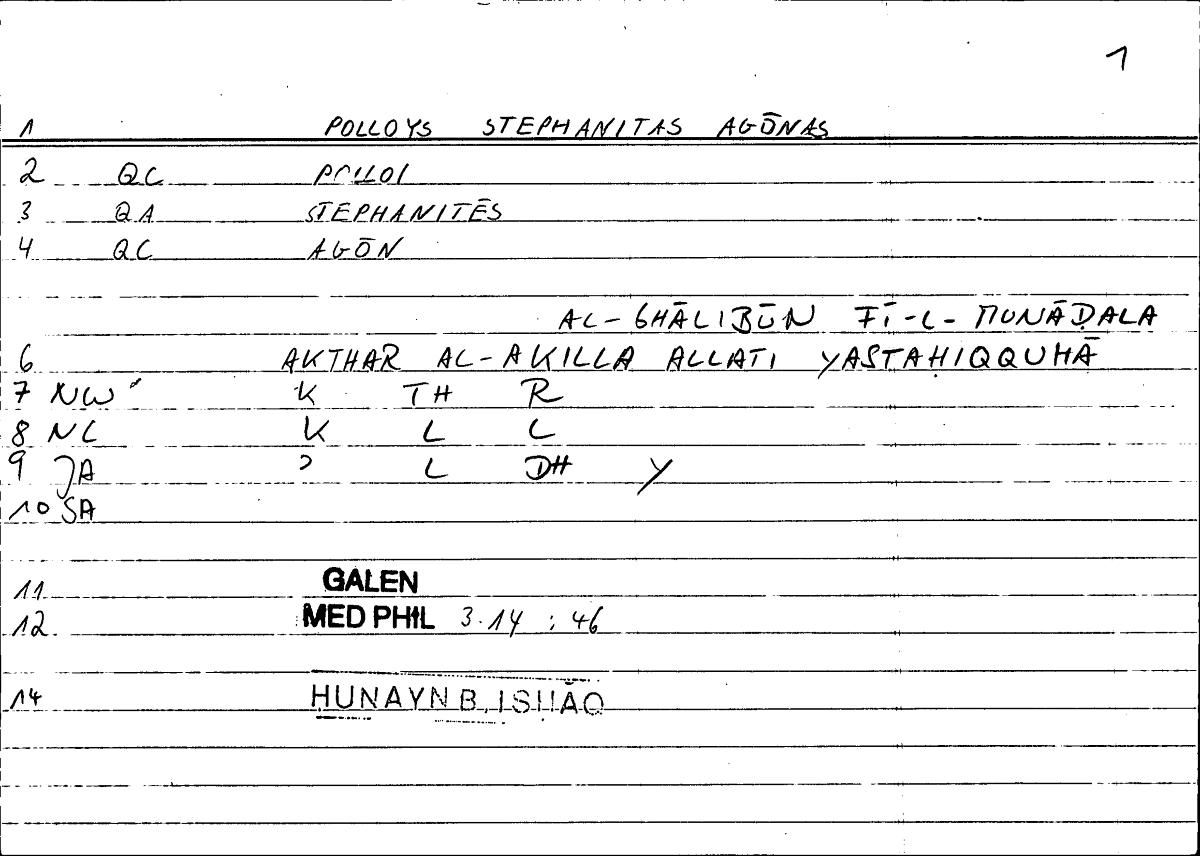 1
1 POLLOYS STEPHANITAS AGŌNAS
2 QC POLLOI
3 QA STEPHANITĒS
4 QC AGŌN
AL-GHĀLIBŪN FĪ-L-MUNĀḌALA
6 AKTHAR AL-AKILLA ALLATI YASTAḤIQQUHĀ
7 NW K TH R
8 NC K L L
9 JA ʾ L DH Y
10 SA
11 GALEN
12. MED PHIL 3.14 : 46
14 HUNAYN B. ISḤĀQ